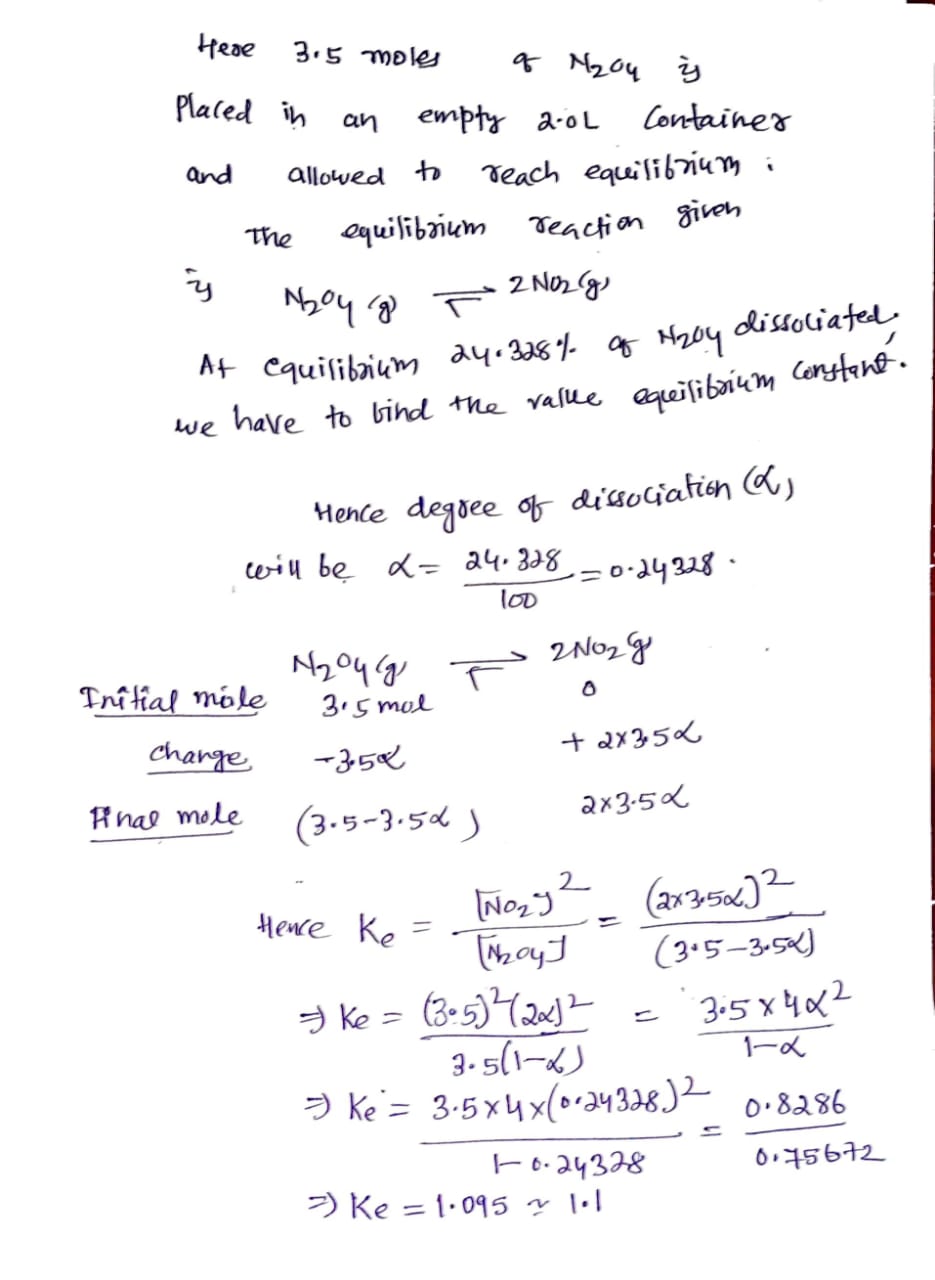 Here 3.5 moles of N2O4 is
Placed in an empty 2.0L Container
and allowed to reach equilibrium :
The equilibrium reaction given
is N2O4 (g) ⇌ 2 NO2 (g)
At equilibrium 24.328% of N2O4 dissociated,
we have to find the value equilibrium constant.
Hence degree of dissociation (α)
will be α = 24.328/100 = 0.24328.
N2O4 (g) ⇌ 2NO2 (g)
Initial mole 3.5 mol 0
change -3.5α + 2x3.5α
Final mole (3.5-3.5α) 2x3.5α
Hence Ke = [NO2]^2/[N2O4] = (2x3.5α)^2/(3.5-3.5α)
⇒ Ke = (3.5)^2(2α)^2/3.5(1-α) = 3.5 x 4α^2/1-α
⇒ Ke = 3.5x4x(0.24328)^2/1-0.24328 = 0.8286/0.75672
⇒ Ke = 1.095 ≃ 1.1